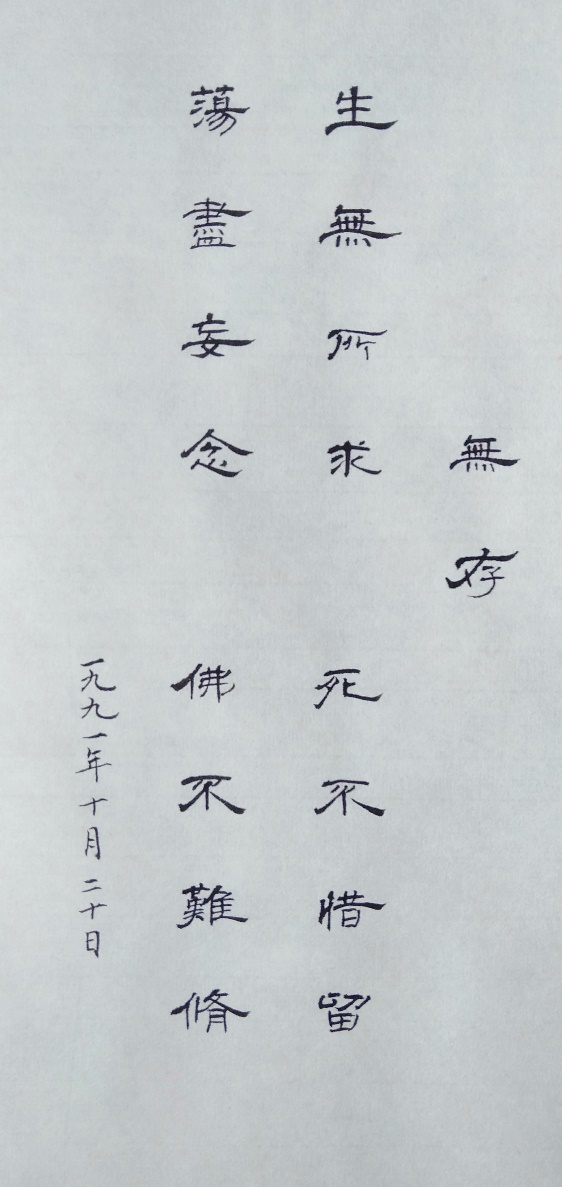 無存
生無所求 死不惜留
蕩盡妄念 佛不難脩
一九九一年十月二十日